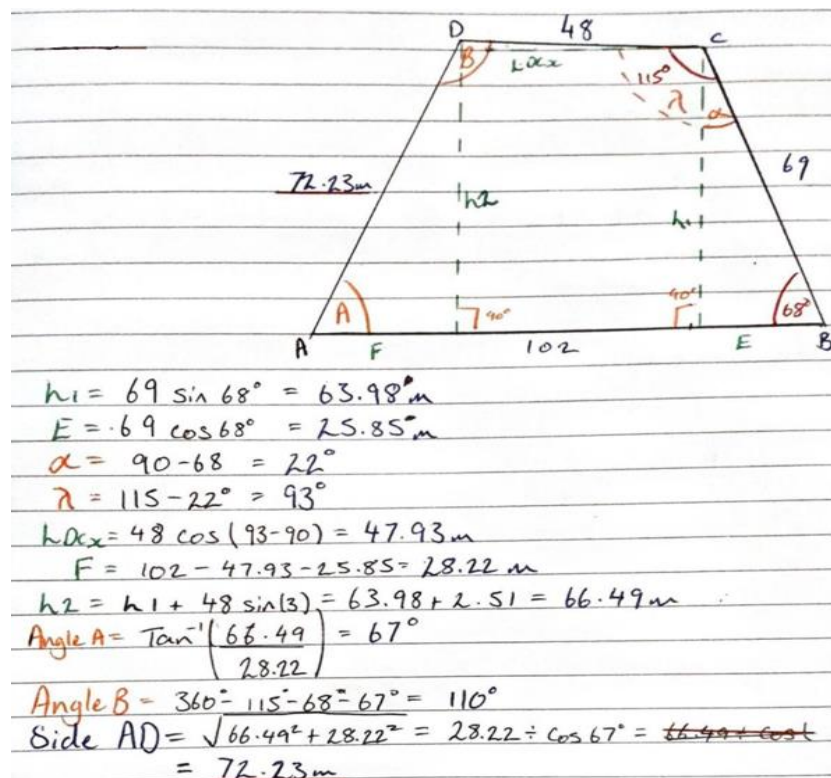 D 48 C
B hDCx 115° λ α
72.23m h2 h1 69
A 90° 90° 68°
A F 102 E B
h1 = 69 sin 68° = 63.98m
E = 69 cos 68° = 25.85m
α = 90-68 = 22°
λ = 115-22° = 93°
hDCx = 48 cos(93-90) = 47.93m
F = 102 - 47.93 - 25.85 = 28.22 m
h2 = h1 + 48 sin(3) = 63.98 + 2.51 = 66.49m
Angle A = Tan⁻¹(66.49/28.22) = 67°
Angle B = 360° - 115° - 68° - 67° = 110°
Side AD = √66.49² + 28.22² = 28.22 ÷ cos 67° =
= 72.23m